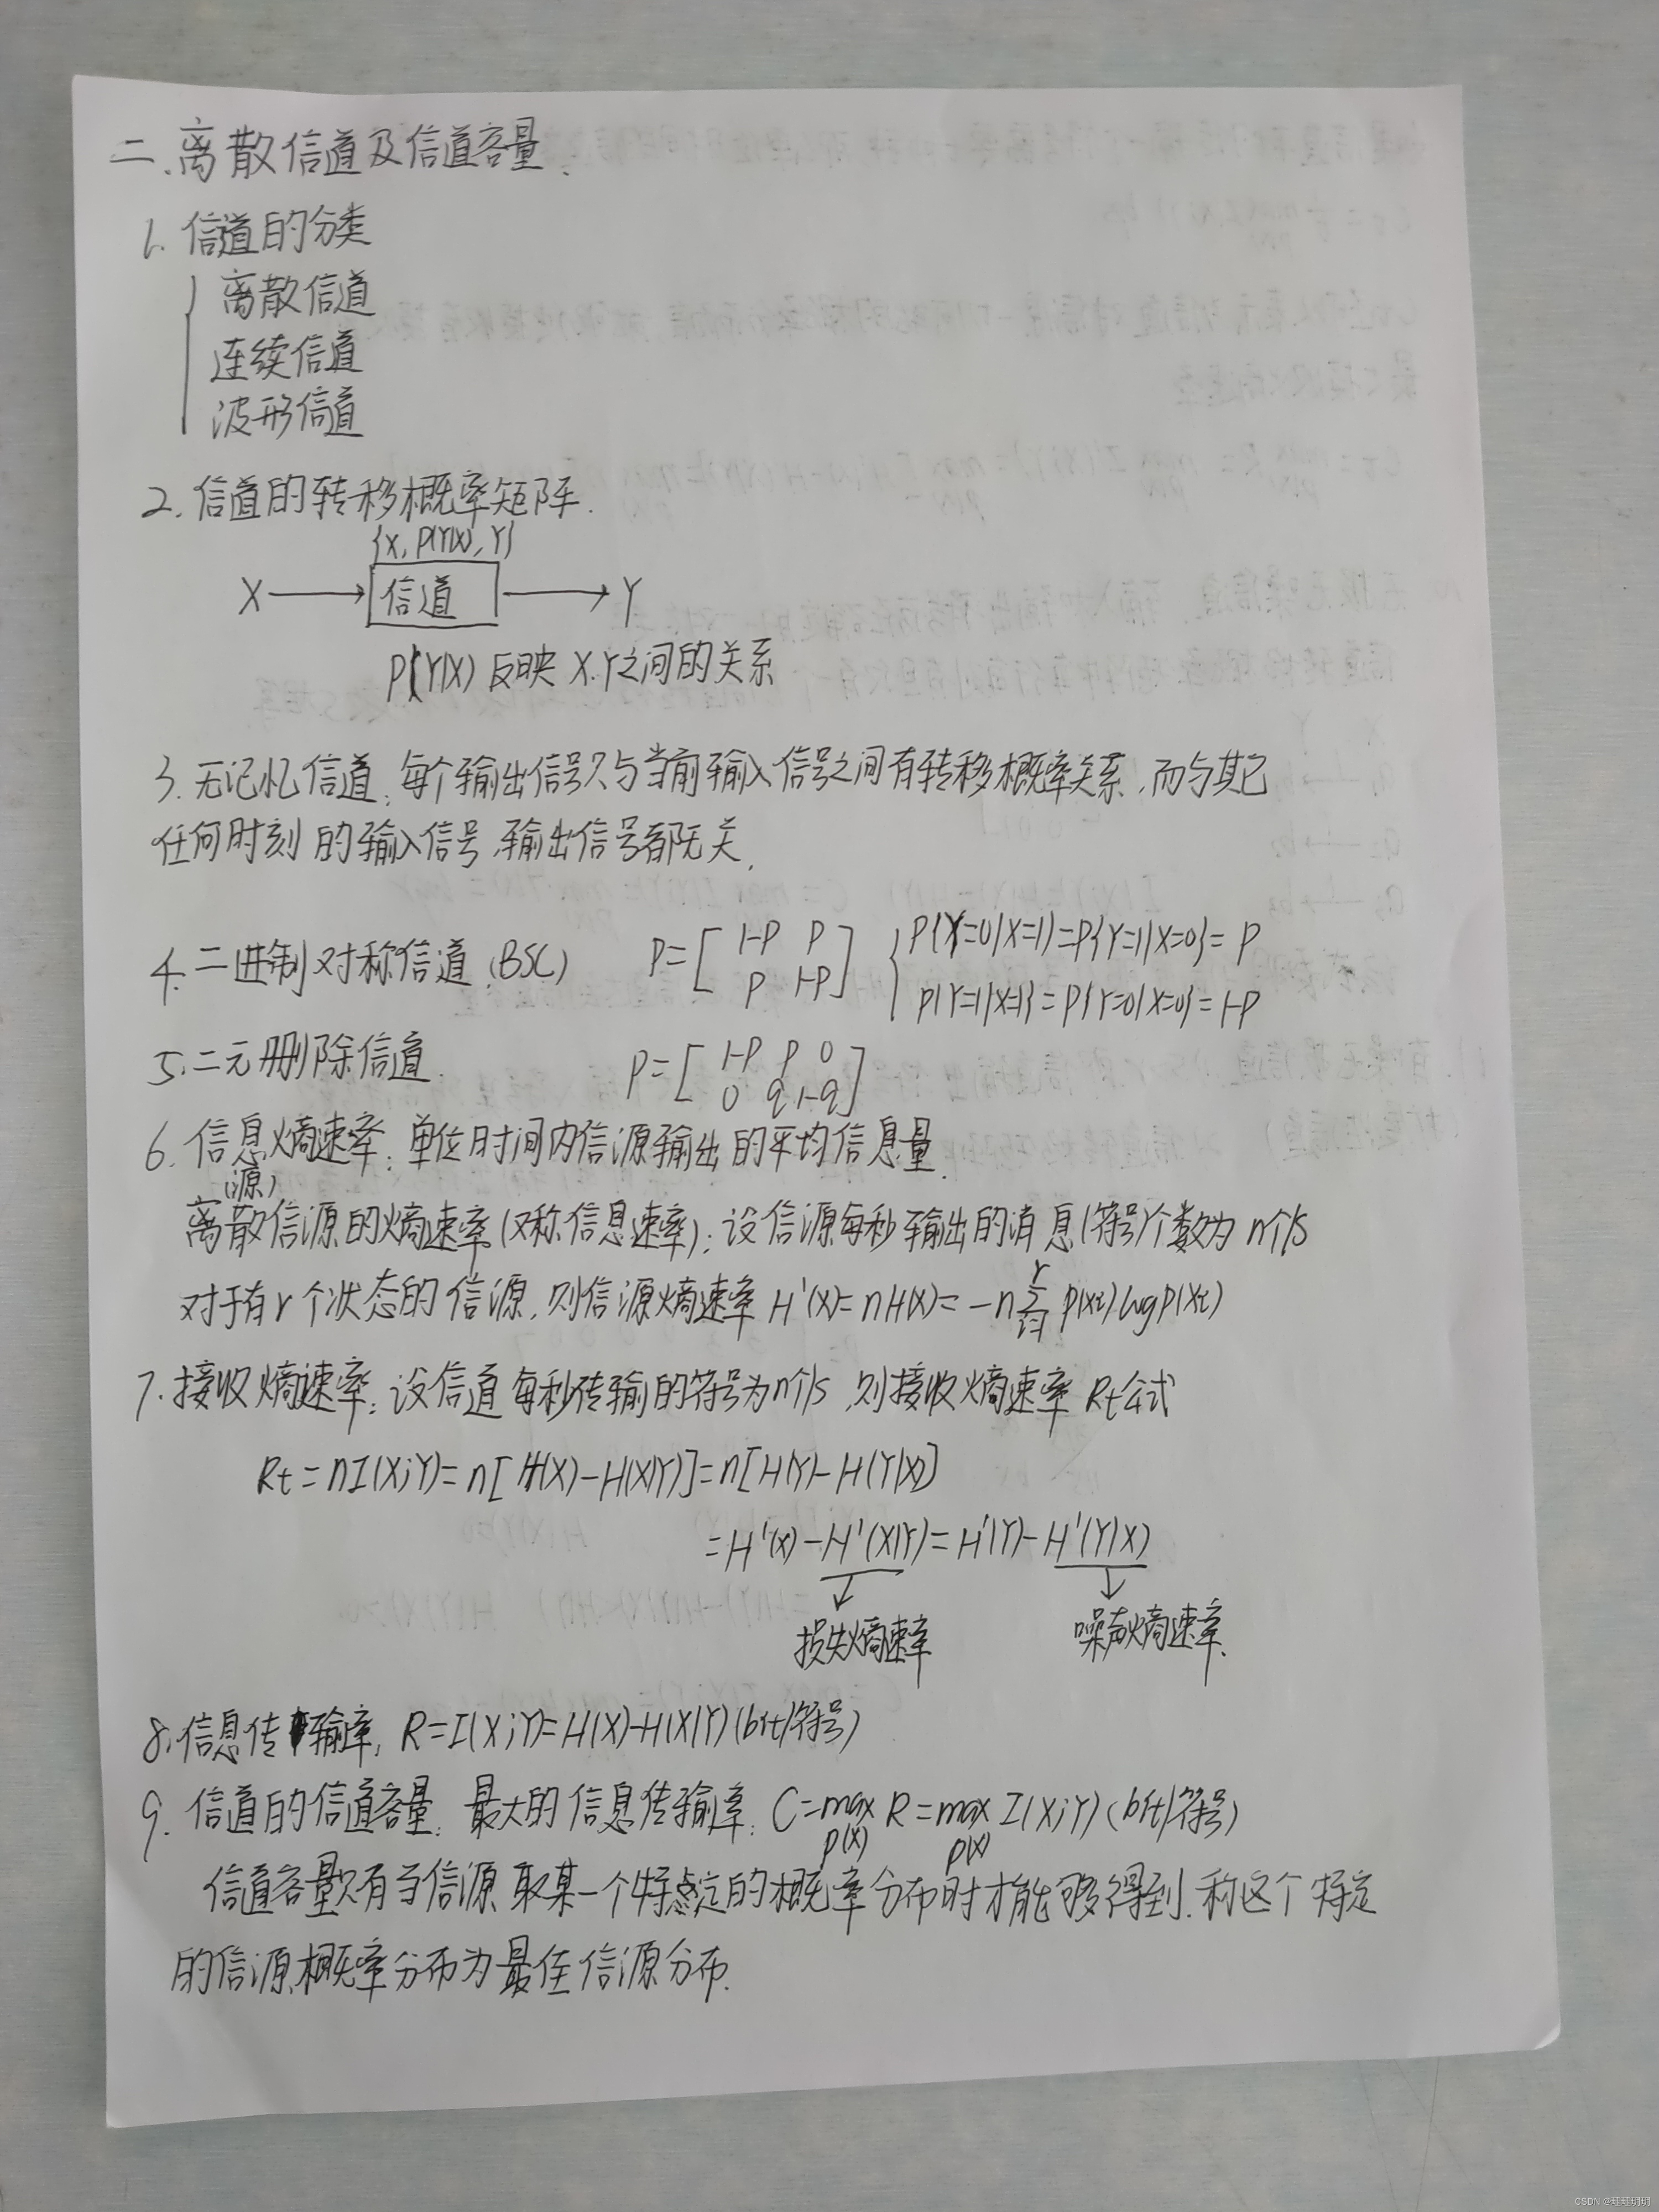 二、离散信道及信道容量.
1. 信道的分类
离散信道
连续信道
波形信道
2. 信道的转移概率矩阵.
{X, P(Y|X), Y}
X → 信道 → Y
P(Y|X) 反映 X.Y之间的关系
3. 无记忆信道: 每个输出信号只与当前输入信号之间有转移概率关系,而与其它
任何时刻的输入信号,输出信号都无关.
4. 二进制对称信道 (BSC) P=[1-P P; P 1-P] { P{Y=0|X=1}=P{Y=1|X=0}=P
P{Y=1|X=1}=P{Y=0|X=0}=1-P
5. 二元删除信道. P=[1-P P 0; 0 q 1-q]
6. 信息熵速率: 单位时间内信源输出的平均信息量.
(源)
离散信源的熵速率(又称信息速率): 设信源每秒输出的消息(符号)个数为n个/s
对于有r个状态的信源,则信源熵速率 H'(X)=nH(X)=-n∑_{i=1}^{r} P(Xi)logP(Xi)
7. 接收熵速率: 设信道每秒传输的符号为n个/s,则接收熵速率 Rt公式
Rt=nI(X;Y)=n[H(X)-H(X|Y)]=n[H(Y)-H(Y|X)]
=H'(X)-H'(X|Y)=H'(Y)-H'(Y|X)
损失熵速率 噪声熵速率.
8. 信息传输率: R=I(X;Y)=H(X)-H(X|Y)(bit/符号)
9. 信道的信道容量: 最大的信息传输率: C=max R=max I(X;Y)(bit/符号)
P(X) P(X)
信道容量只有当信源取某一个特定的概率分布时才能够得到.称这个特定
的信源概率分布为最佳信源分布.
CSDN @珏珏玥玥